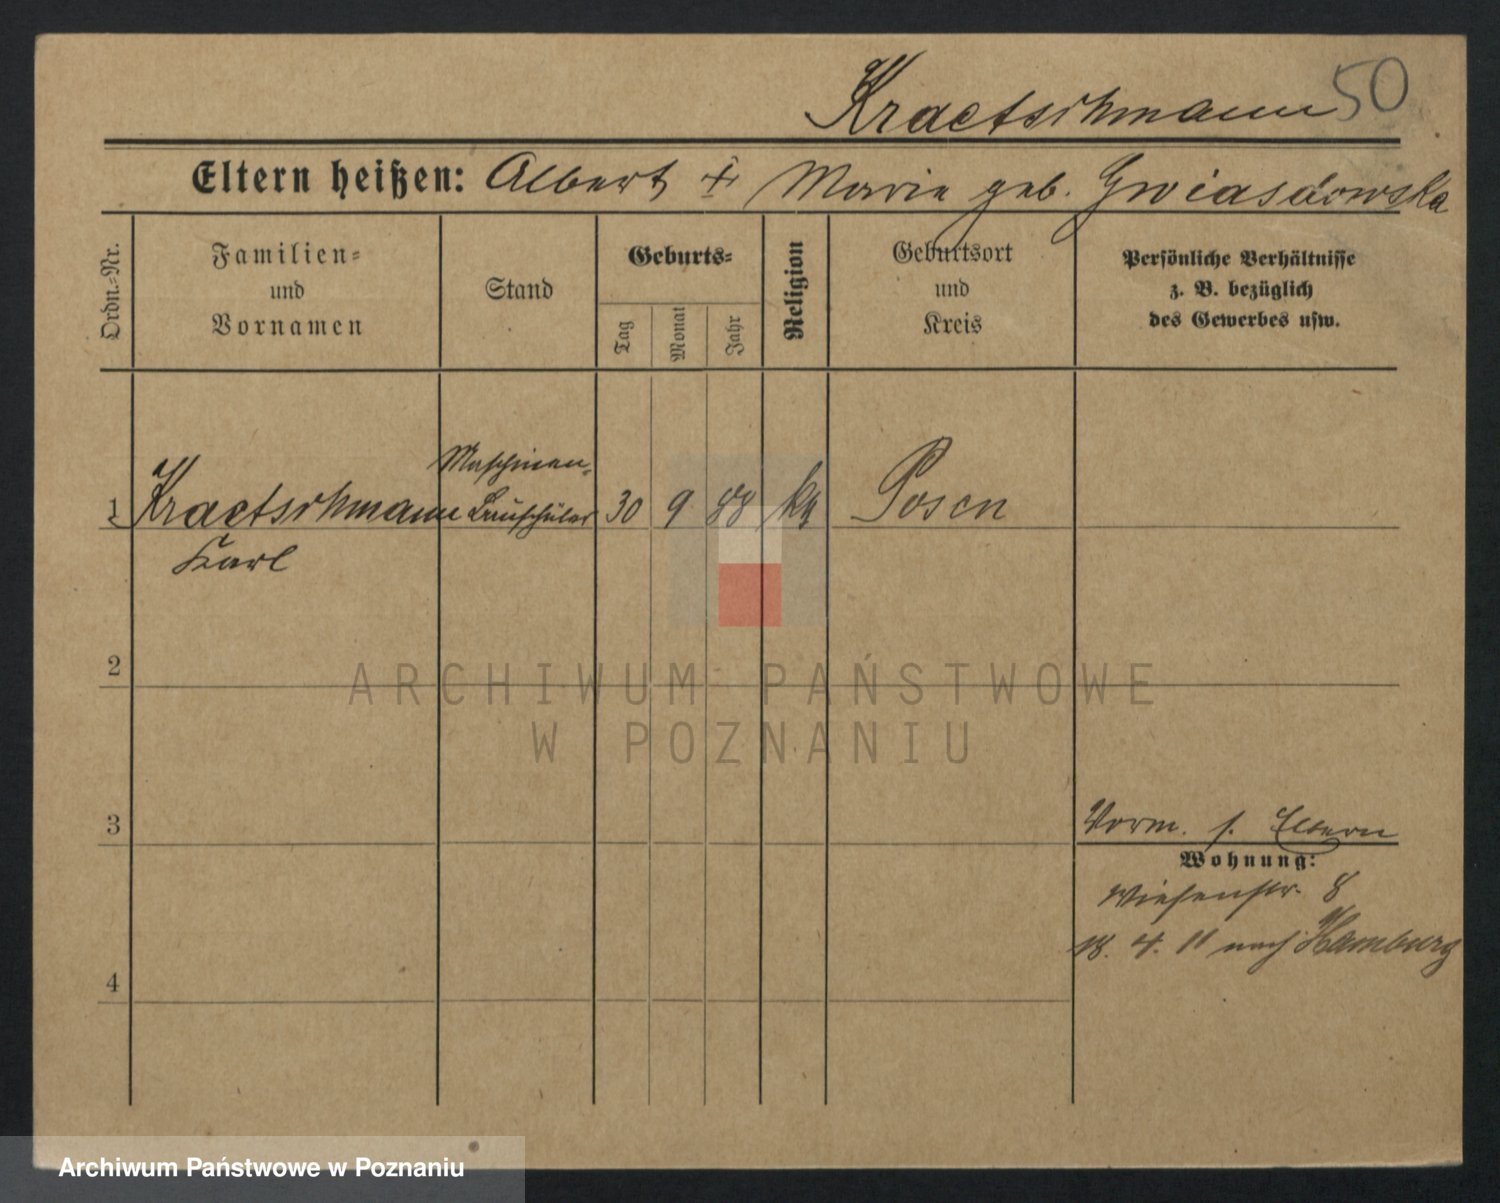 Kraetschmann 50
Eltern heißen: Albert + Marie geb. Gwiasdowska
Ordn.-Nr.
Familien-
und
Vornamen
Stand
Geburts-
Tag
Monat
Jahr
Religion
Geburtsort
und
Kreis
Persönliche Verhältnisse
z. B. bezüglich
des Gewerbes usw.
Maschinen-
1 Kraetschmann Bauschüler 30 9 88 kth Posen
Karl
2
3
4
Vorm. s. Eltern
Wohnung:
Wiesenstr. 8
18. 4. 11 nach Hamburg
ARCHIWUM PAŃSTWOWE
W POZNANIU
Archiwum Państwowe w Poznaniu